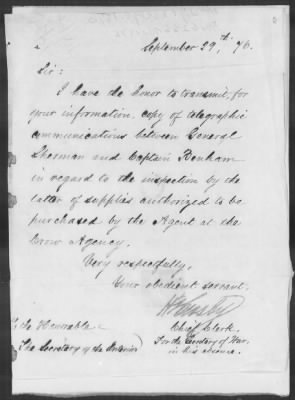 September 29th, 76.
Sir:
I have the honor to transmit, for
your information, copy of telegraphic
communications between General
Sherman and Captain Benham
in regard to the inspection by the
latter of supplies authorized to be
purchased by the Agent at the
Crow Agency.
Very respectfully,
Your obedient servant,
H T Crosby
Chief Clerk.
For the Secretary of War
in his absence.
To the Honorable
The Secretary of the Interior